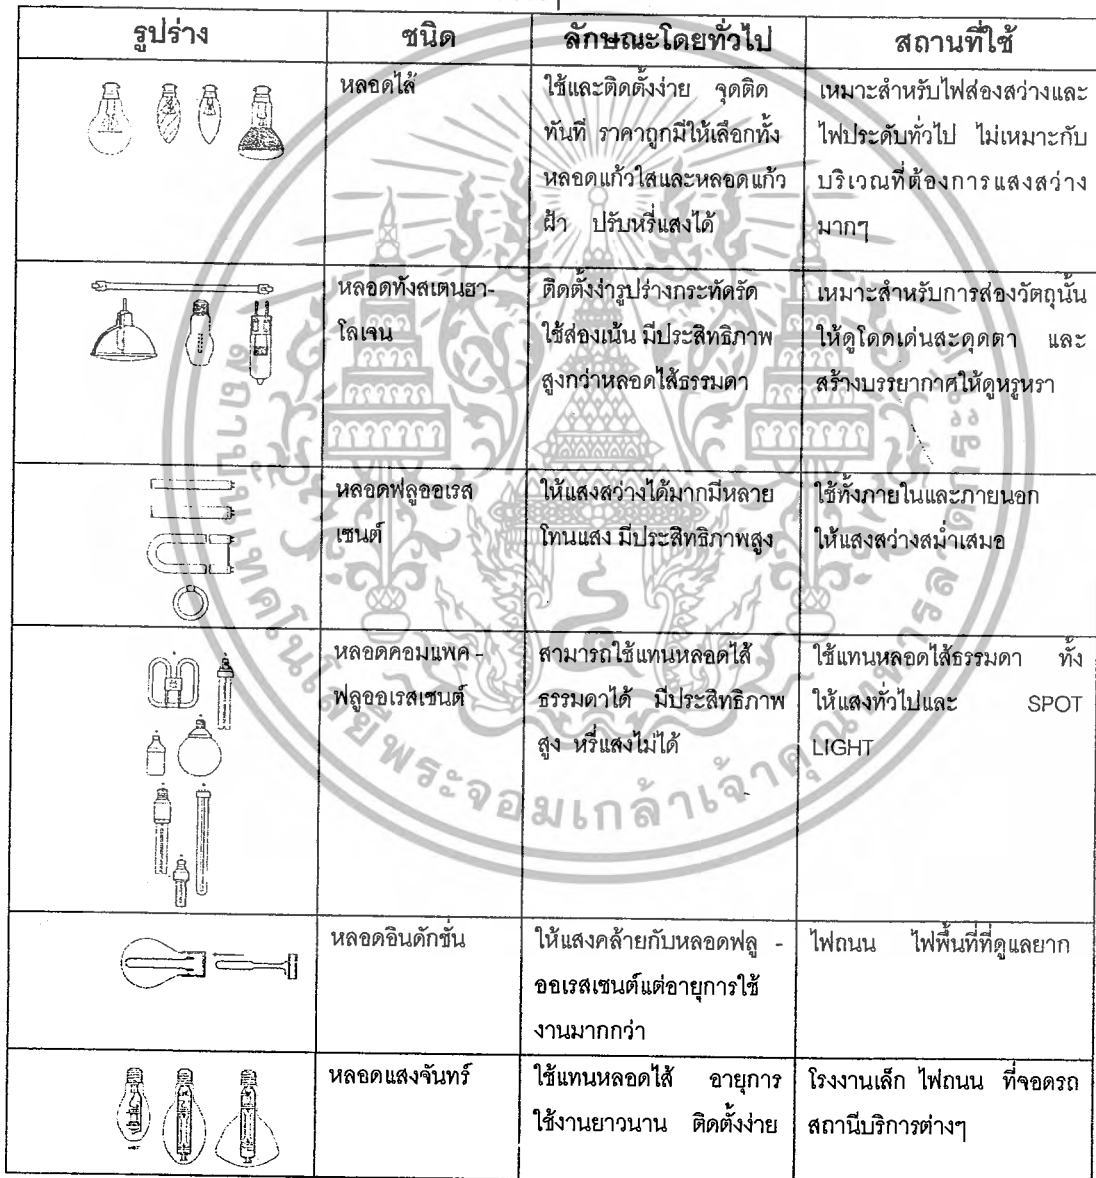 รูปร่าง ชนิด ลักษณะโดยทั่วไป สถานที่ใช้
หลอดไส้
ใช้และติดตั้งง่าย จุดติด
ทันที ราคาถูกมีให้เลือกทั้ง
หลอดแก้วใสและหลอดแก้ว
ฝ้า ปรับหรี่แสงได้
เหมาะสำหรับไฟส่องสว่างและ
ไฟประดับทั่วไป ไม่เหมาะกับ
บริเวณที่ต้องการแสงสว่าง
มากๆ
หลอดทังสเตนฮา-
โลเจน
ติดตั้งง่ารูปร่างกระทัดรัด
ใช้ส่องเน้น มีประสิทธิภาพ
สูงกว่าหลอดไส้ธรรมดา
เหมาะสำหรับการส่องวัตถุนั้น
ให้ดูโดดเด่นสะดุดตา และ
สร้างบรรยากาศให้ดูหรูหรา
หลอดฟลูออเรส
เซนต์
ให้แสงสว่างได้มากมีหลาย
โทนแสง มีประสิทธิภาพสูง
ใช้ทั้งภายในและภายนอก
ให้แสงสว่างสม่ำเสมอ
หลอดคอมแพค -
ฟลูออเรสเซนต์
สามารถใช้แทนหลอดไส้
ธรรมดาได้ มีประสิทธิภาพ
สูง หรี่แสงไม่ได้
ใช้แทนหลอดไส้ธรรมดา ทั้ง
ให้แสงทั่วไปและ SPOT
LIGHT
หลอดอินดักชั่น
ให้แสงคล้ายกับหลอดฟลู -
ออเรสเซนต์แต่อายุการใช้
งานมากกว่า
ไฟถนน ไฟพื้นที่ที่ดูแลยาก
หลอดแสงจันทร์
ใช้แทนหลอดไส้ อายุการ
ใช้งานยาวนาน ติดตั้งง่าย
โรงงานเล็ก ไฟถนน ที่จอดรถ
สถานีบริการต่างๆ
สถาบันเทคโนโลยีพระจอมเกล้าเจ้าคุณทหารลาดกระบัง